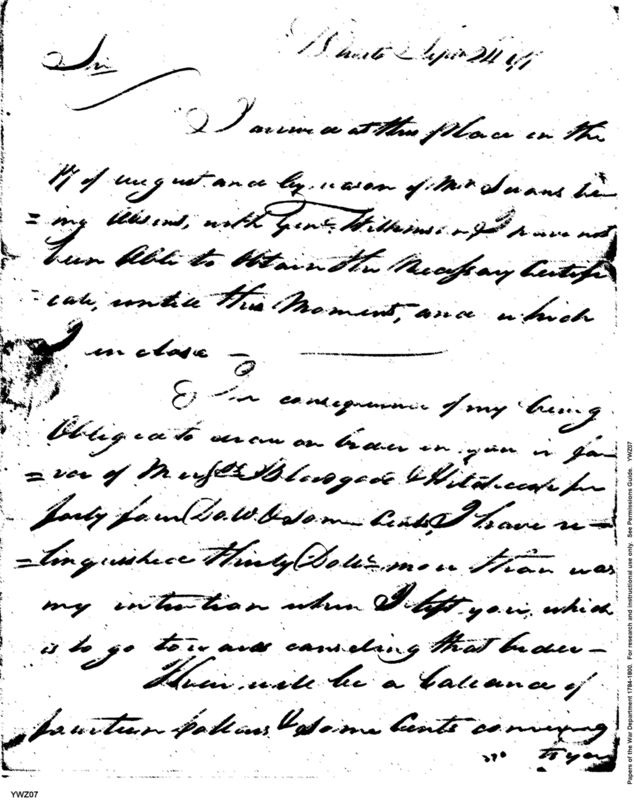 Sir
Sepr 24 97
I arrived at this Place on the
17 of august and by reason of Mr Swans be
= ing Absent, with Genl. Wilkinson I have not
been Able to Obtain the Necessary Certifi
= cate, untill this Moment, and which
I inclose —
In consequence of my being
Obliged to draw an order on you in fa
= vor of Messrs & Hitchcock for
forty four Dolls & some Cents, I have re
= linquished thirty Dolls. more than was
my intention when I left you, which
is to go towards canseling that order —
There will be a balance of
fourteen Dollars & some Cents comeing
to you
YWZ07
Papers of the War Department 1784-1800. For research and instructional use only. See Permissions Guide. YWZ07